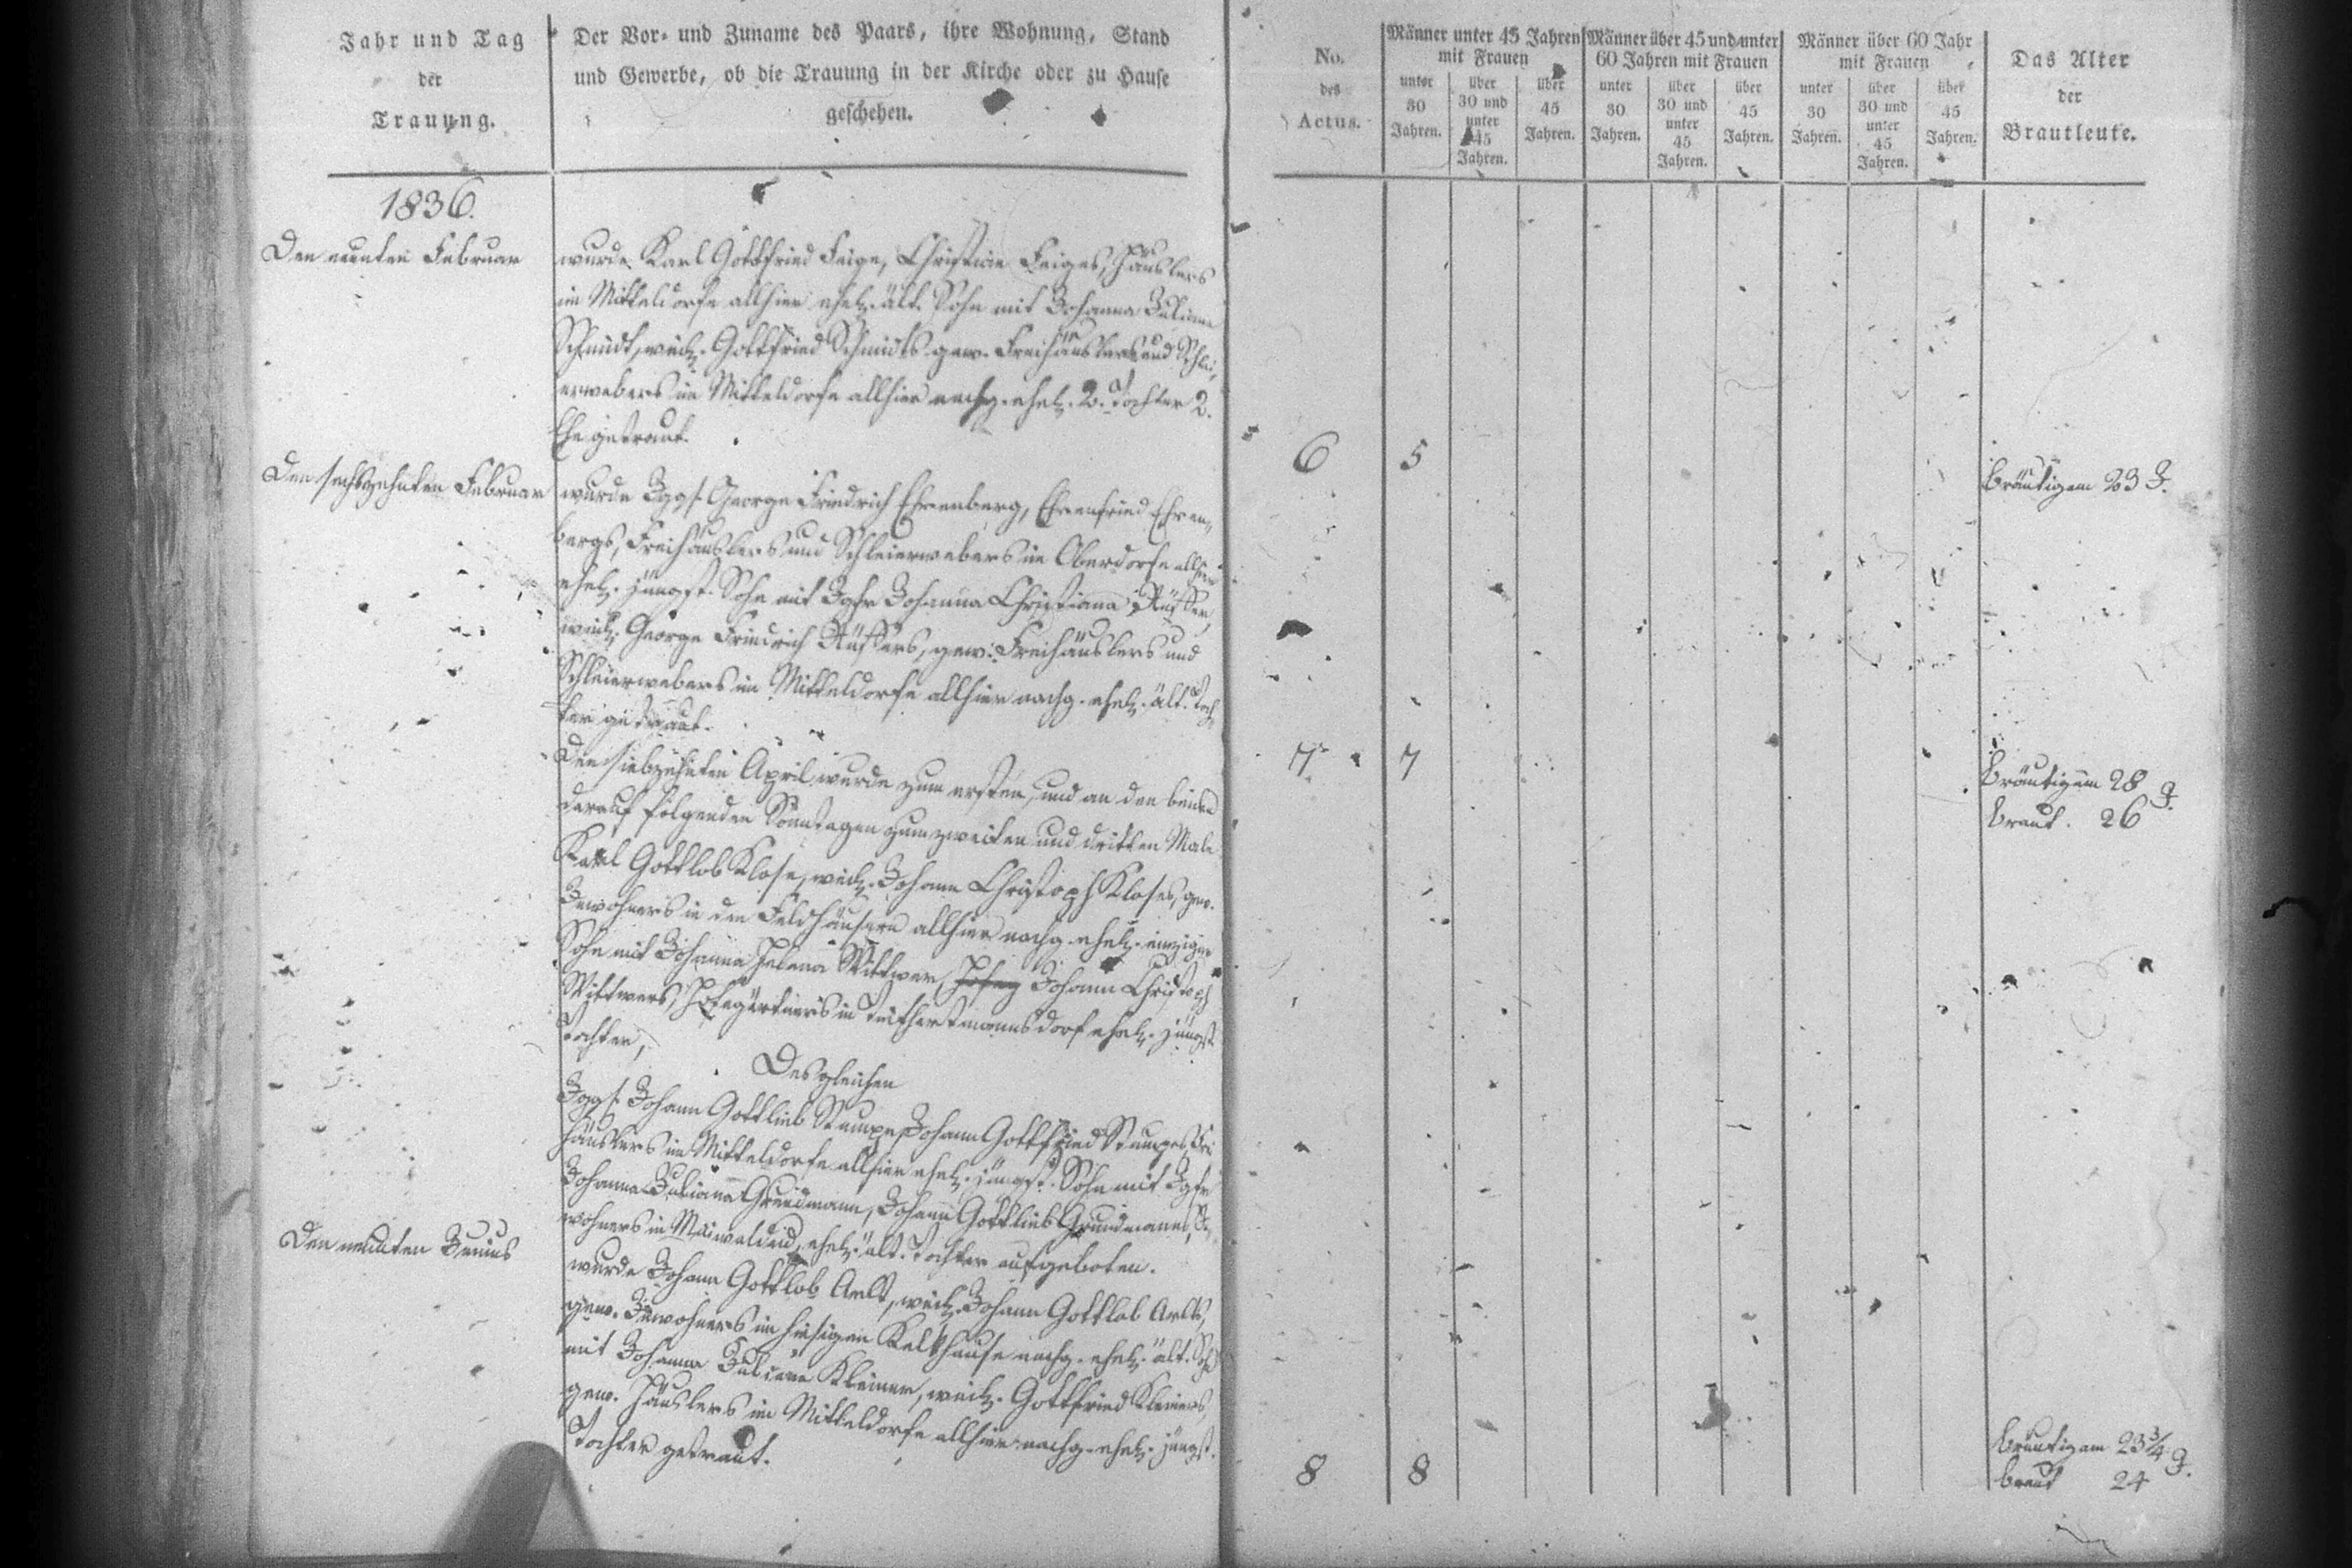 Jahr und Tag
der
Trauung.
Der Vor- und Zuname des Paars, ihre Wohnung, Stand
und Gewerbe, ob die Trauung in der Kirche oder zu Hause
geschehen.
1836.
Den neunten Februar
wurde Karl Gottfried Feige, Christian Feiges, Häuslers
im Mitteldorfe allhier ehel. ält. Sohn mit Johanna Juliane
Schmidt, weil. Gottfried Schmidts gew. Freihäuslers und Schlei,
erwebers im Mitteldorfe allhier nachg. ehel. 2. Tochter 2.
Ehe getraut.
Den sechszehnten Februar
wurde Jggs. George Friedrich Ehrenberg, Ehrenfried Ehren,
bergs, Freihäuslers und Schleierwebers im Oberdorfe allhier
ehel. jüngst. Sohn mit Jgfr Johanna Christiana
weil. George Friedrich gew. Freihäuslers und
Schleierwebers im Mitteldorfe allhier nachg. ehel. ält. Toch,
ter getraut.
Den siebzehnten April wurde zum ersten, und an den beiden
darauf folgenden Sonntagen zum zweiten und dritten Male
Karl Gottlob Klose, weil. Johann Christoph Kloses, gew.
Inwohners in den Feldhäusern allhier nachg. ehel. einziger
Sohn mit Johanna Helena Wittwer, Johann Christoph
Wittwers, Hofegärtners in ehel. jüngst.
Tochter,
Desgleichen
Jggs. Johann Gottlieb Stumpe, Johann Gottfried Stumpes, Frei
häuslers im Mitteldorfe allhier ehel. jüngst. Sohn mit Jgfr
Johanna Juliana Grundmann, Johann Gottlieb Grundmanns, In,
wohners in Maiwaldau, ehel. ält. Tochter aufgeboten.
Den neunten Junius
wurde Johann Gottlob Arlt, weil. Johann Gottlob Arlts,
gew. Inwohners im hiesigen Kalkhause nachg. ehel. ält. Sohn
mit Johanna Juliane Kleiner, weil. Gottfried Kleiners,
gew. Häuslers im Mitteldorfe allhier nachg. ehel. jüngst.
Tochter getraut.
No.
des
Actus.
Männer unter 45 Jahren
mit Frauen
unter
30
Jahren.
über
30 und
unter
45
Jahren.
über
45
Jahren.
Männer über 45 und unter
60 Jahren mit Frauen
unter
30
Jahren.
über
30 und
unter
45
Jahren.
über
45
Jahren.
Männer über 60 Jahr
mit Frauen
unter
30
Jahren.
über
30 und
unter
45
Jahren.
über
45
Jahren.
Das Alter
der
Brautleute.
6 5
Bräutigam 23 J.
7 7
Bräutigam 28 J.
Braut. 26
8 8
Bräutigam 23 3/4 J.
Braut 24